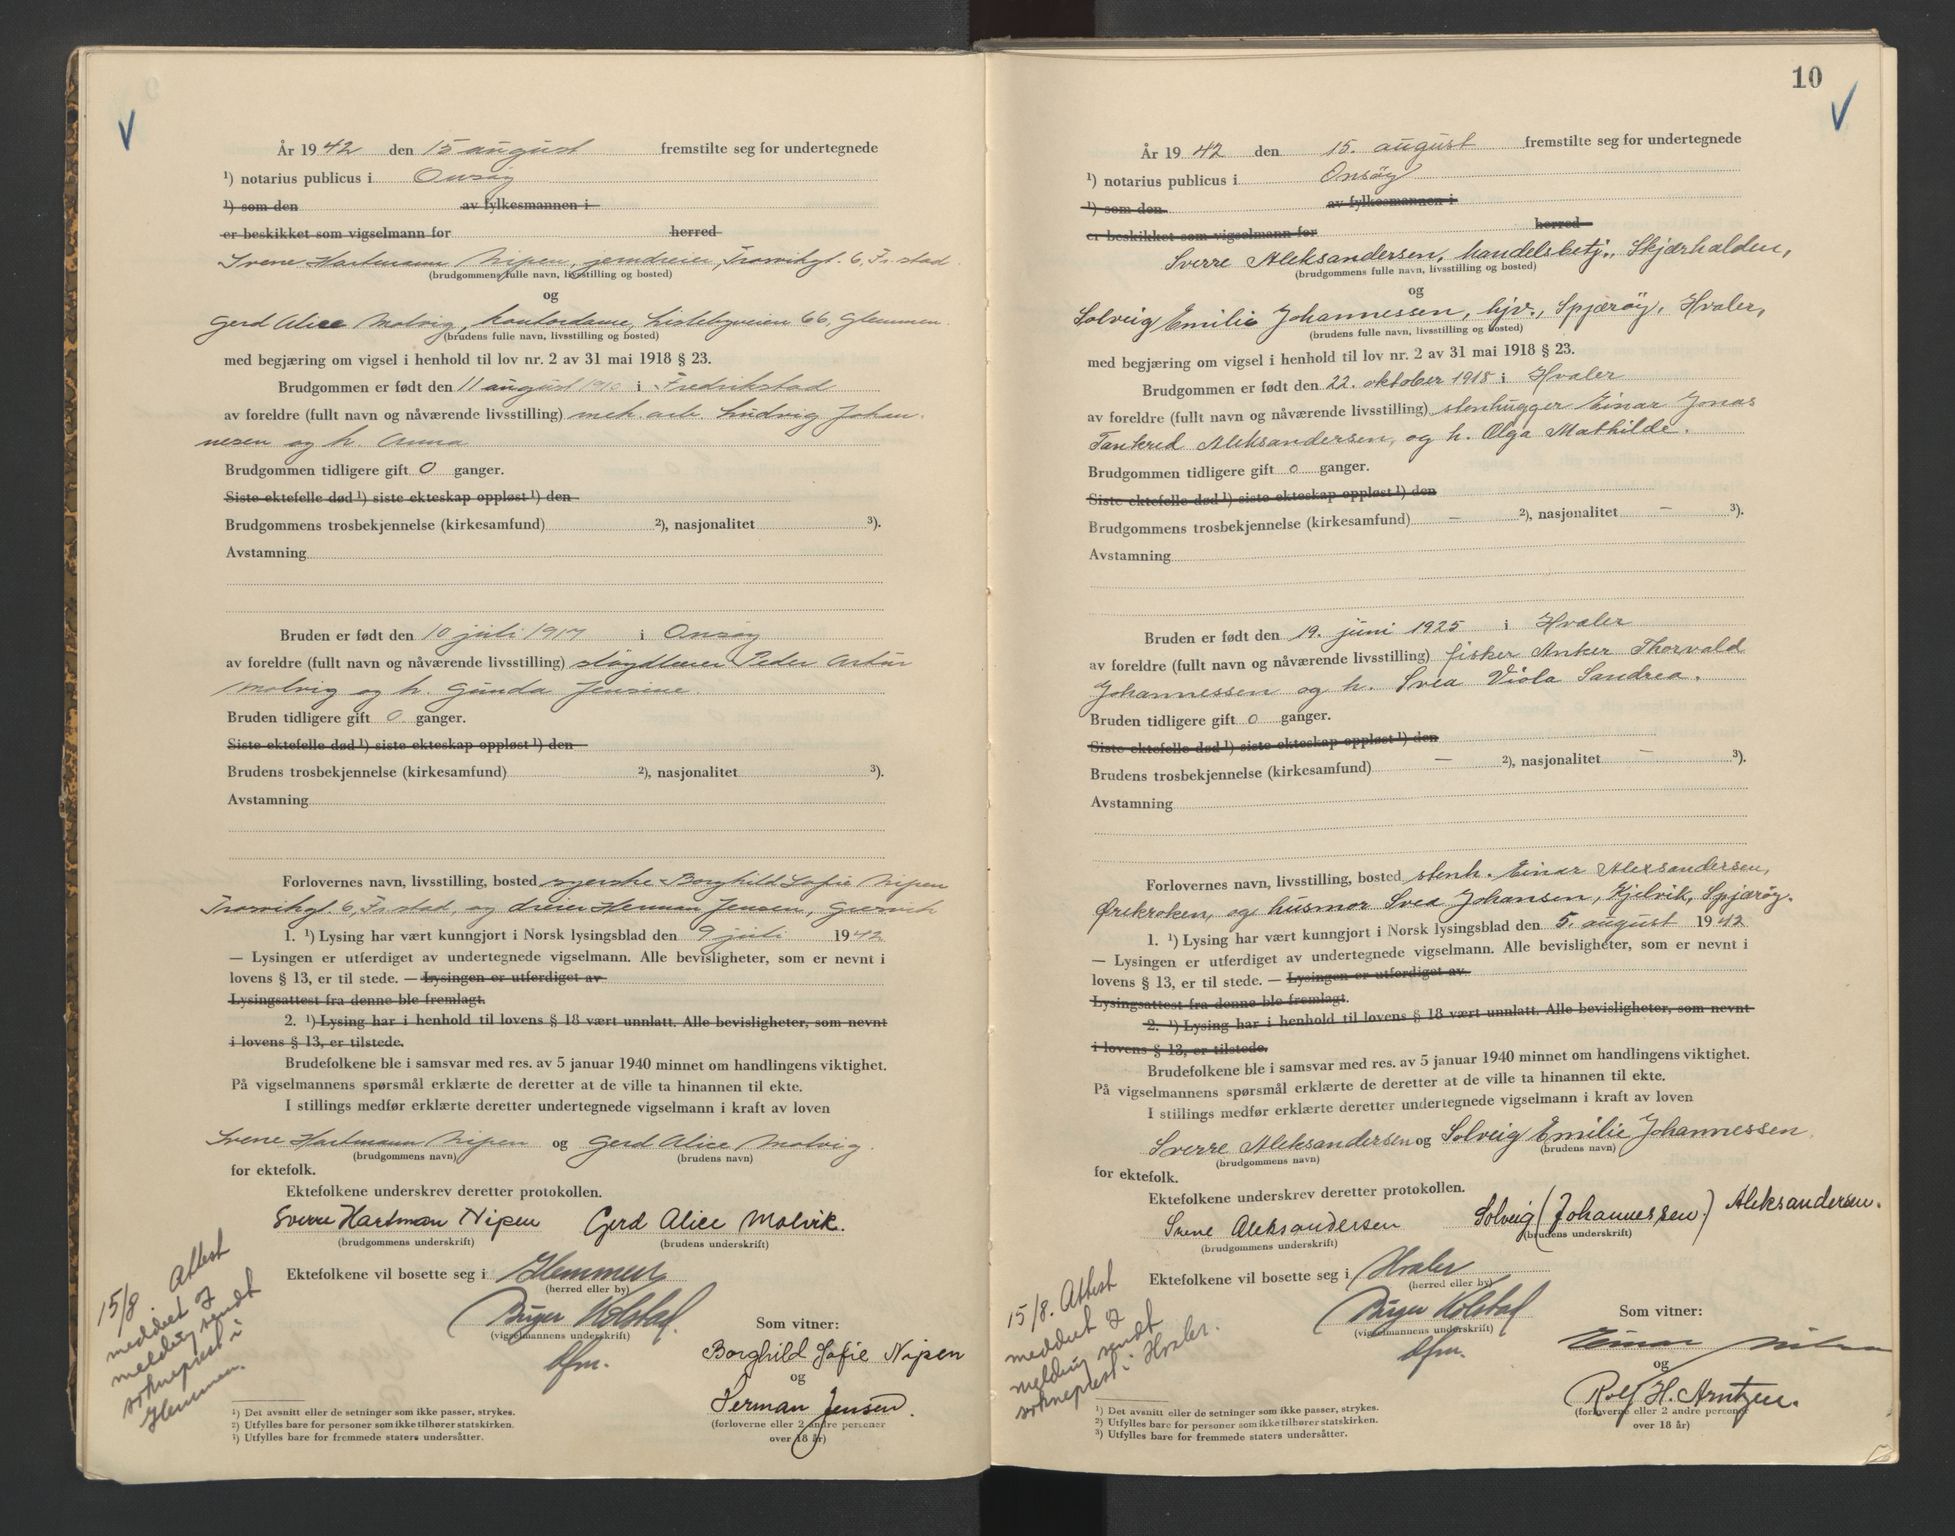 År 1942 den 15 august fremstilte seg for undertegnede
¹) notarius publicus i Onsøy
¹) som den av fylkesmannen i
er beskikket som vigselmann for herred
Sverre Hartmann Nipen, jerndreier, Trosvikgt. 6, Fr.stad.
(brudgommens fulle navn, livsstilling og bosted)
og
Gerd Alice Molvig, kontordame, Lislebyveien 66, Glemmen.
(brudens fulle navn, livsstilling og bosted)
med begjæring om vigsel i henhold til lov nr. 2 av 31 mai 1918 § 23.
Brudgommen er født den 11 august 191 i Fredrikstad
av foreldre (fullt navn og nåværende livsstilling) mek. arb. Ludvig Johan-
nesen og h. Anna
Brudgommen tidligere gift 0 ganger.
Siste ektefelle død ¹) siste ekteskap oppløst ¹) den
Brudgommens trosbekjennelse (kirkesamfund) ²), nasjonalitet ³).
Avstamning
Bruden er født den 10 juli 1917 i Onsøy
av foreldre (fullt navn og nåværende livsstilling) sløydlærer Peder Artur
Molvig og h. Gunda Jensine.
Bruden tidligere gift 0 ganger.
Siste ektefelle død ¹) siste ekteskap oppløst ¹) den
Brudens trosbekjennelse (kirkesamfund) ²), nasjonalitet ³).
Avstamning
Forlovernes navn, livsstilling, bosted syerske Borghild Sofie Nipen
Trosvikgt. 6, Fr.stad, og dreier Herman Jensen,
1. ¹) Lysing har vært kunngjort i Norsk lysingsblad den 9 juli 1942
— Lysingen er utferdiget av undertegnede vigselmann. Alle bevisligheter, som er nevnt i
lovens § 13, er til stede. — Lysingen er utferdiget av
Lysingsattest fra denne ble fremlagt.
2. ¹) Lysing har i henhold til lovens § 18 vært unnlatt. Alle bevisligheter, som nevnt
i lovens § 13, er tilstede.
Brudefolkene ble i samsvar med res. av 5 januar 1940 minnet om handlingens viktighet.
På vigselmannens spørsmål erklærte de deretter at de ville ta hinannen til ekte.
I stillings medfør erklærte deretter undertegnede vigselmann i kraft av loven
Sverre Hartmann Nipen og Gerd Alice Molvig.
(brudgommens navn) (brudens navn)
for ektefolk.
Ektefolkene underskrev deretter protokollen.
Sverre Hartman Nipen Gerd Alice Molvik.
(brudgommens underskrift) (brudens underskrift)
Ektefolkene vil bosette seg i Glemmen
(herred eller by)
Birger Kolstad.
(vigselmannens underskrift)
dfm.
Som vitner:
Borghild Sofie Nipen
og
Herman Jensen.
(forloverne eller 2 andre personer
over 18 år)
15/8. Attest
meddelt og
melding sendt
sokneprest i
Glemmen.
¹) Det avsnitt eller de setninger som ikke passer, strykes.
²) Utfylles bare for personer som ikke tilhører statskirken.
³) Utfylles bare for fremmede staters undersåtter.
10
År 1942 den 15. august fremstilte seg for undertegnede
¹) notarius publicus i Onsöy
¹) som den av fylkesmannen i
er beskikket som vigselmann for herred
Sverre Aleksandersen, handelsbetj., Skjærhalden,
(brudgommens fulle navn, livsstilling og bosted)
og
Solveig Emilie Johannessen, hjv., Spjæröy, Hvaler,
(brudens fulle navn, livsstilling og bosted)
med begjæring om vigsel i henhold til lov nr. 2 av 31 mai 1918 § 23.
Brudgommen er født den 22. oktober 1918 i Hvaler
av foreldre (fullt navn og nåværende livsstilling) stenhugger Einar Jonas
Tankred Aleksandersen, og h. Olga Mathilde.
Brudgommen tidligere gift 0 ganger.
Siste ektefelle død ¹) siste ekteskap oppløst ¹) den
Brudgommens trosbekjennelse (kirkesamfund) — ²), nasjonalitet — ³).
Avstamning
Bruden er født den 19. juni 1925 i Hvaler
av foreldre (fullt navn og nåværende livsstilling) fisker Anker Thorvald
Johannessen og h. Svea Viola Sandrea.
Bruden tidligere gift 0 ganger.
Siste ektefelle død ¹) siste ekteskap oppløst ¹) den
Brudens trosbekjennelse (kirkesamfund) — ²), nasjonalitet — ³).
Avstamning
Forlovernes navn, livsstilling, bosted stenh. Einar Alexsandersen,
Ørekroken, og husmor Svea Johansen, Kjelvik, Spjæröy.
1. ¹) Lysing har vært kunngjort i Norsk lysingsblad den 5. august 1942
— Lysingen er utferdiget av undertegnede vigselmann. Alle bevisligheter, som er nevnt i
lovens § 13, er til stede. — Lysingen er utferdiget av
Lysingsattest fra denne ble fremlagt.
2. ¹) Lysing har i henhold til lovens § 18 vært unnlatt. Alle bevisligheter, som nevnt
i lovens § 13, er tilstede.
Brudefolkene ble i samsvar med res. av 5 januar 1940 minnet om handlingens viktighet.
På vigselmannens spørsmål erklærte de deretter at de ville ta hinannen til ekte.
I stillings medfør erklærte deretter undertegnede vigselmann i kraft av loven
Sverre Aleksandersen og Solveig Emilie Johannessen.
(brudgommens navn) (brudens navn)
for ektefolk.
Ektefolkene underskrev deretter protokollen.
Sverre Aleksandersen Solveig (Johannessen.) Aleksandersen.
(brudgommens underskrift) (brudens underskrift)
Ektefolkene vil bosette seg i Hvaler
(herred eller by)
Birger Kolstad
(vigselmannens underskrift)
dfm.
Som vitner:
Einar Nilsen
og
Rolf H. Arntzen.
(forloverne eller 2 andre personer
over 18 år)
15/8. Attest
meddelt og
melding sendt
sokneprest i Hvaler.
¹) Det avsnitt eller de setninger som ikke passer, strykes.
²) Utfylles bare for personer som ikke tilhører statskirken.
³) Utfylles bare for fremmede staters undersåtter.